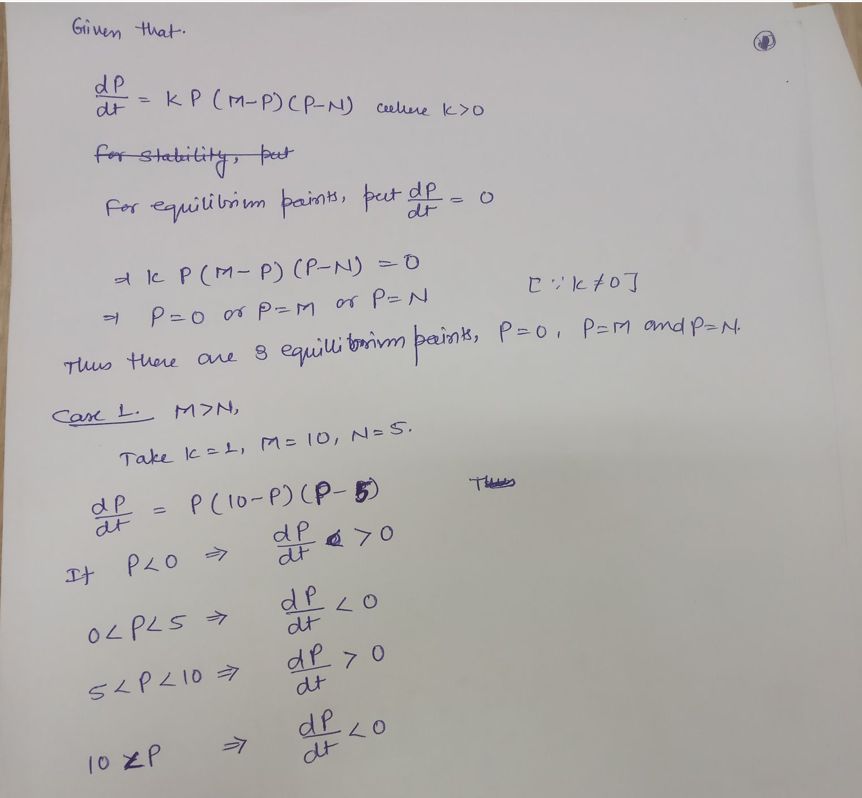 Given that.
①
dP/dt = K P (M-P) (P-N) where K>0
for stability, put
For equilibrim points, put dP/dt = 0
⇒ K P (M-P) (P-N) = 0
⇒ P=0 or P=M or P=N [∵ K≠0]
Thus there are 3 equilibrium points, P=0, P=M and P=N.
Case 1. M>N,
Take K=1, M=10, N=5.
dP/dt = P(10-P)(P-5) Thus
If P<0 ⇒ dP/dt >0
0<P<5 ⇒ dP/dt <0
5<P<10 ⇒ dP/dt >0
10<P ⇒ dP/dt <0